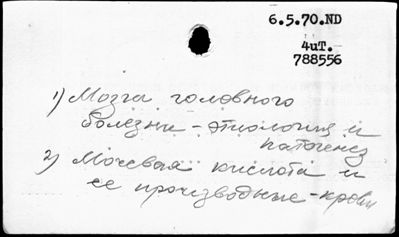 6.5.70.ND
4uT.
788556
1) Мозга головного
болезни - этиология и
патогенез
2) Мочевая кислота и
ее производные - крови